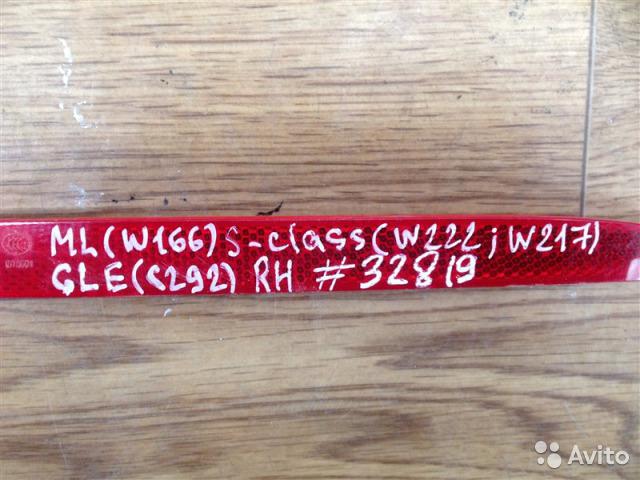 ML(W166) S-class(W222; W217)
GLE(C292) RH #32819
Avito